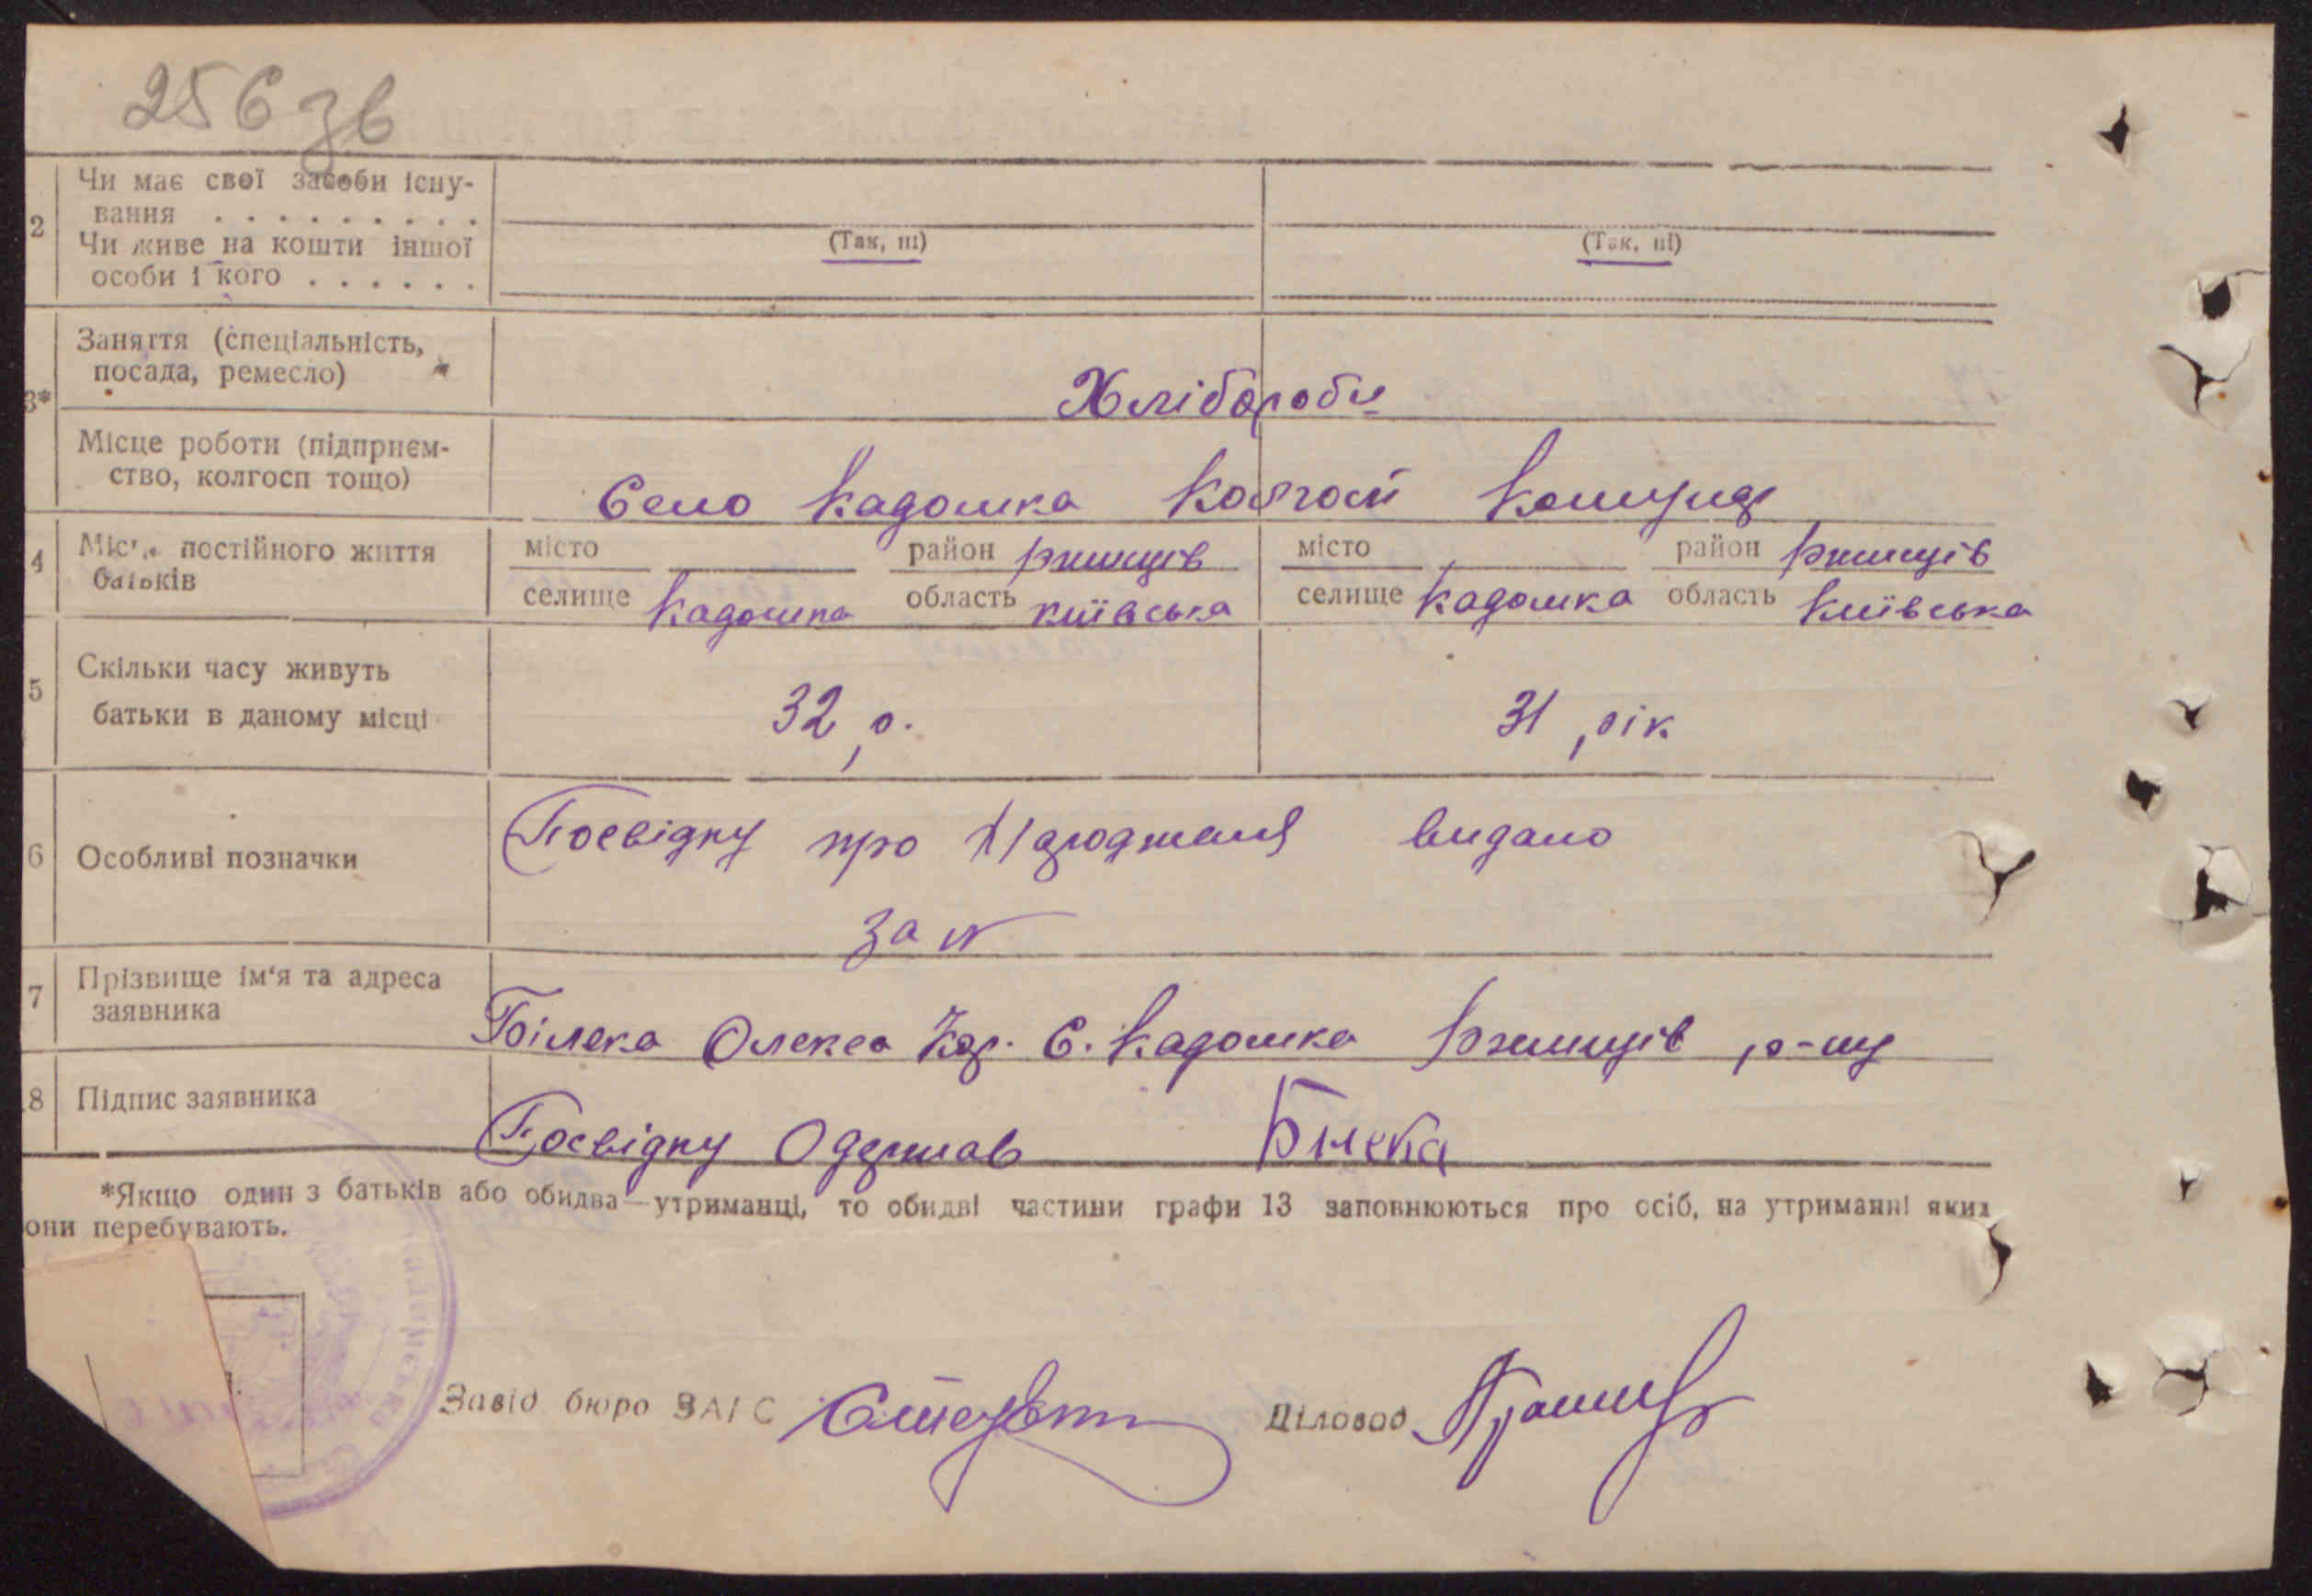 256зв
2 Чи має свої засоби існу-
вання . . . . . . . . .
Чи живе на кошти іншої
особи і кого . . . . . .
(Так, ні) (Так, ні)
3* Заняття (спеціальність,
посада, ремесло)
Хлібороби
Місце роботи (підприєм-
ство, колгосп тощо)
Село Кадомка Колгосп
4 постійного життя
батьків
місто район Ржищів місто район Ржищів
селище Кадомка область Київська селище Кадомка область Київська
5 Скільки часу живуть
батьки в даному місці
32 р. 31 рік
6 Особливі позначки
Посвідку про Народження видано
за №
7 Прізвище ім'я та адреса
заявника
Білека Олекса С. Кадомка Ржищів р-ну
8 Підпис заявника
Посвідку Одержав Билека
*Якщо один з батьків або обидва—утриманці, то обидві частини графи 13 заповнюються про осіб, на утриманні яких
они перебувають.
Завід бюро ЗАГС Діловод